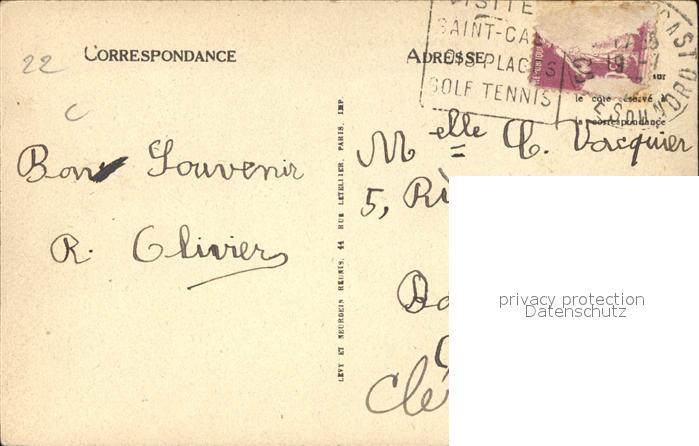 22
CORRESPONDANCE
ADRESSE
VISITE
SAINT-CAS
SES PLAGES
GOLF TENNIS
le côté réservé à
la correspondance
Bon Souvenir
R. Olivier
LÉVY ET NEURDEIN RÉUNIS, 44 RUE LETELLIER, PARIS, IMP
Melle Ch. Vacquier
5,
privacy protection
Datenschutz